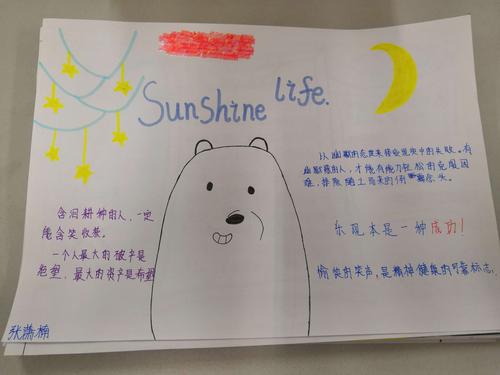 Sunshine life.
以幽默的态度来接受现实中的失败。有
幽默感的人，才能有能力轻松的克服困
难，排除随之而来的倒霉念头。
乐观本是一种成功！
愉快的笑声，是精神健康的可靠标志。
含泪耕种的人，一定
能含笑收获。
一个人最大的破产是
绝望，最大的资产是希望
张楠